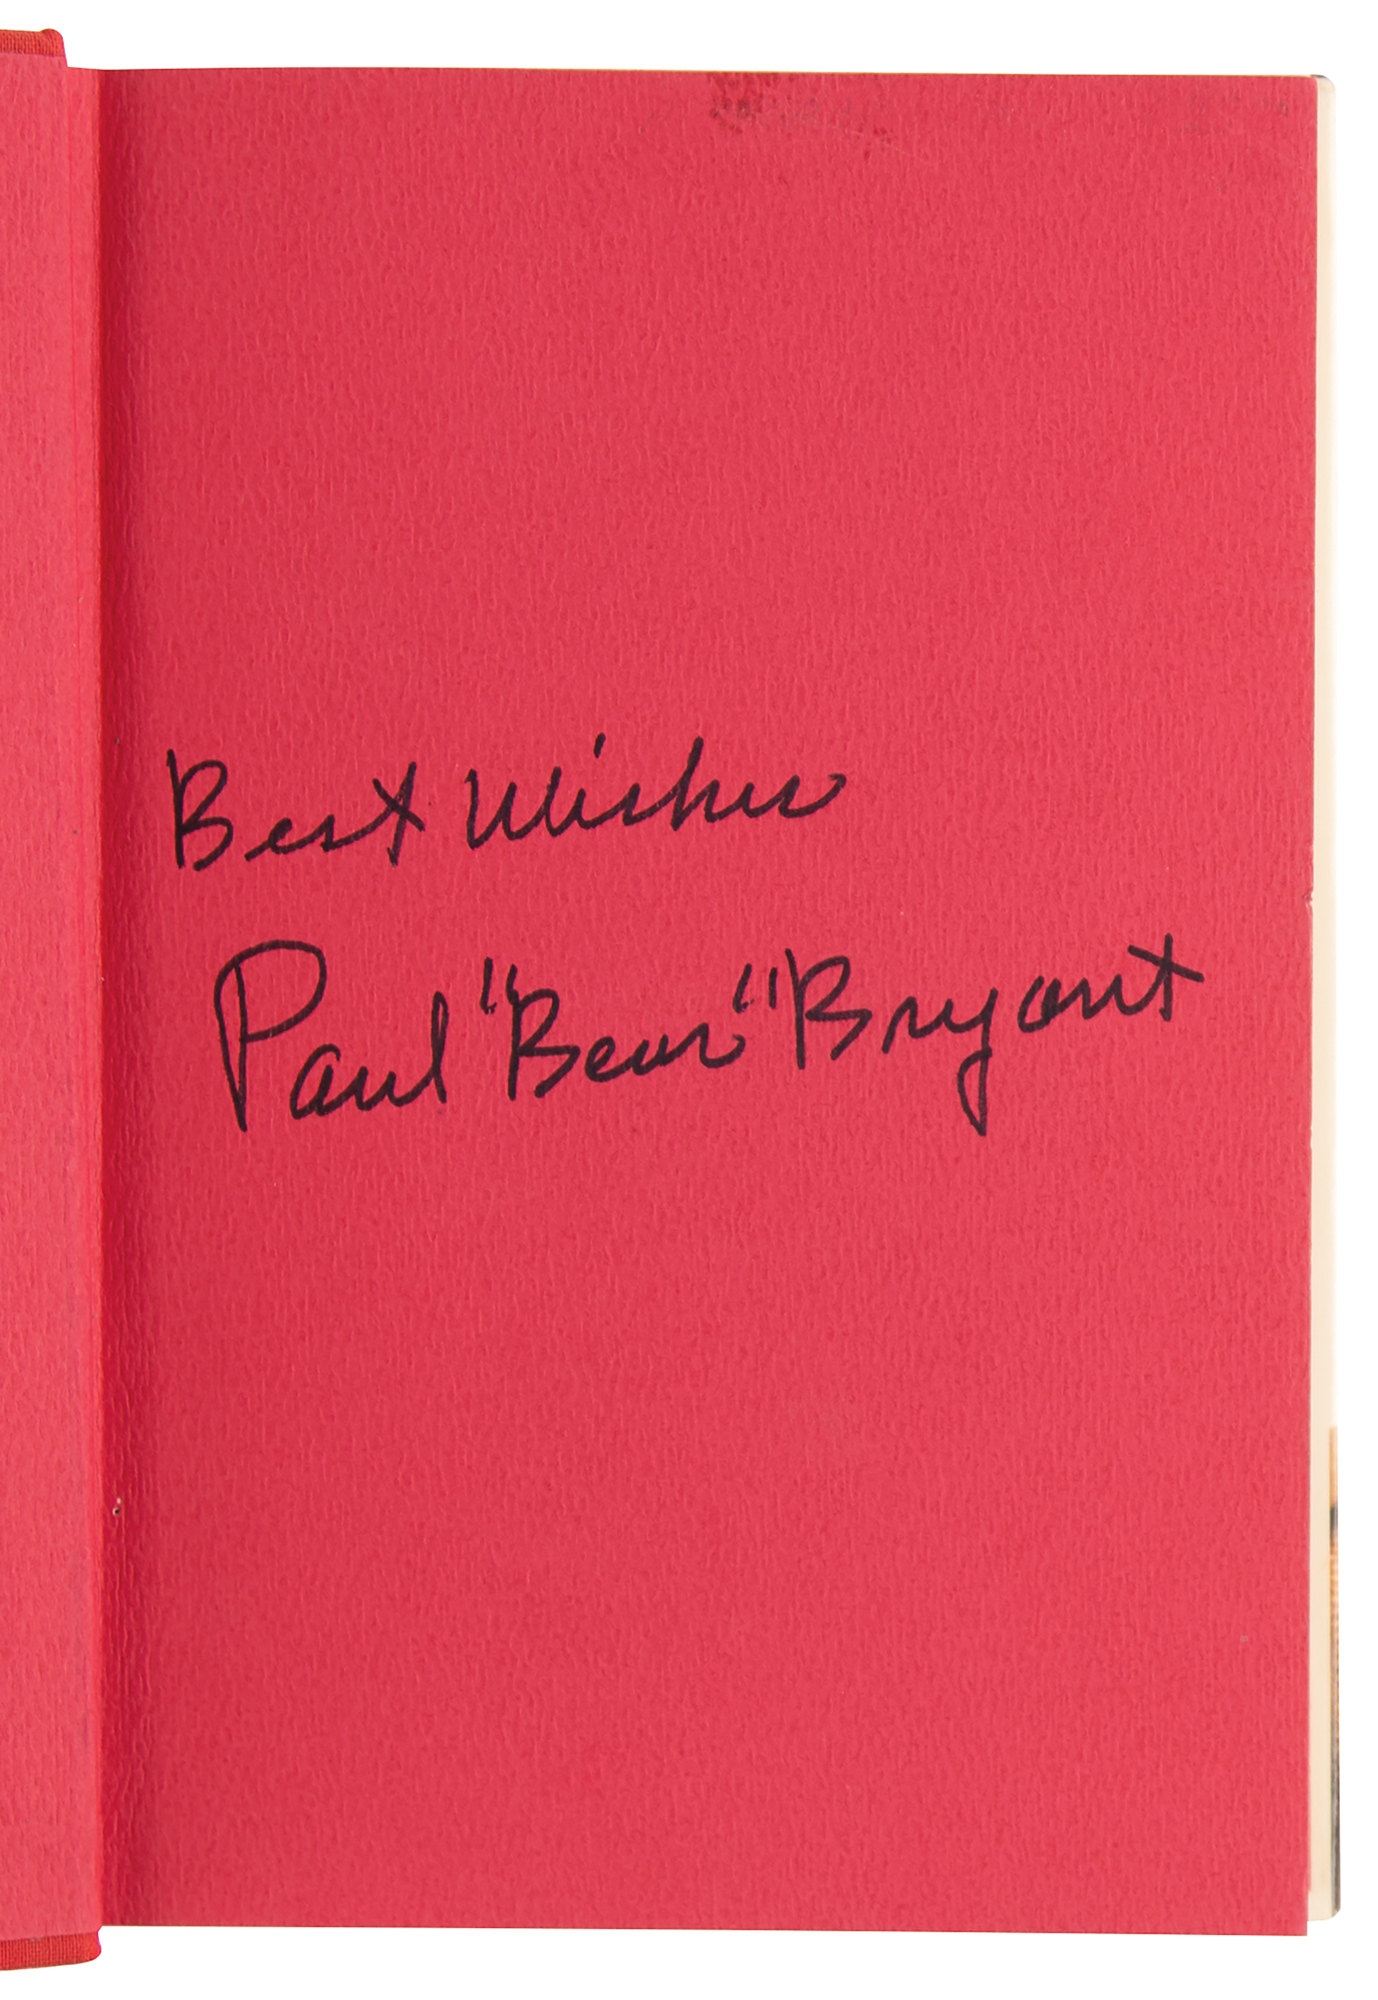 Best Wishes
Paul "Bear" Bryant